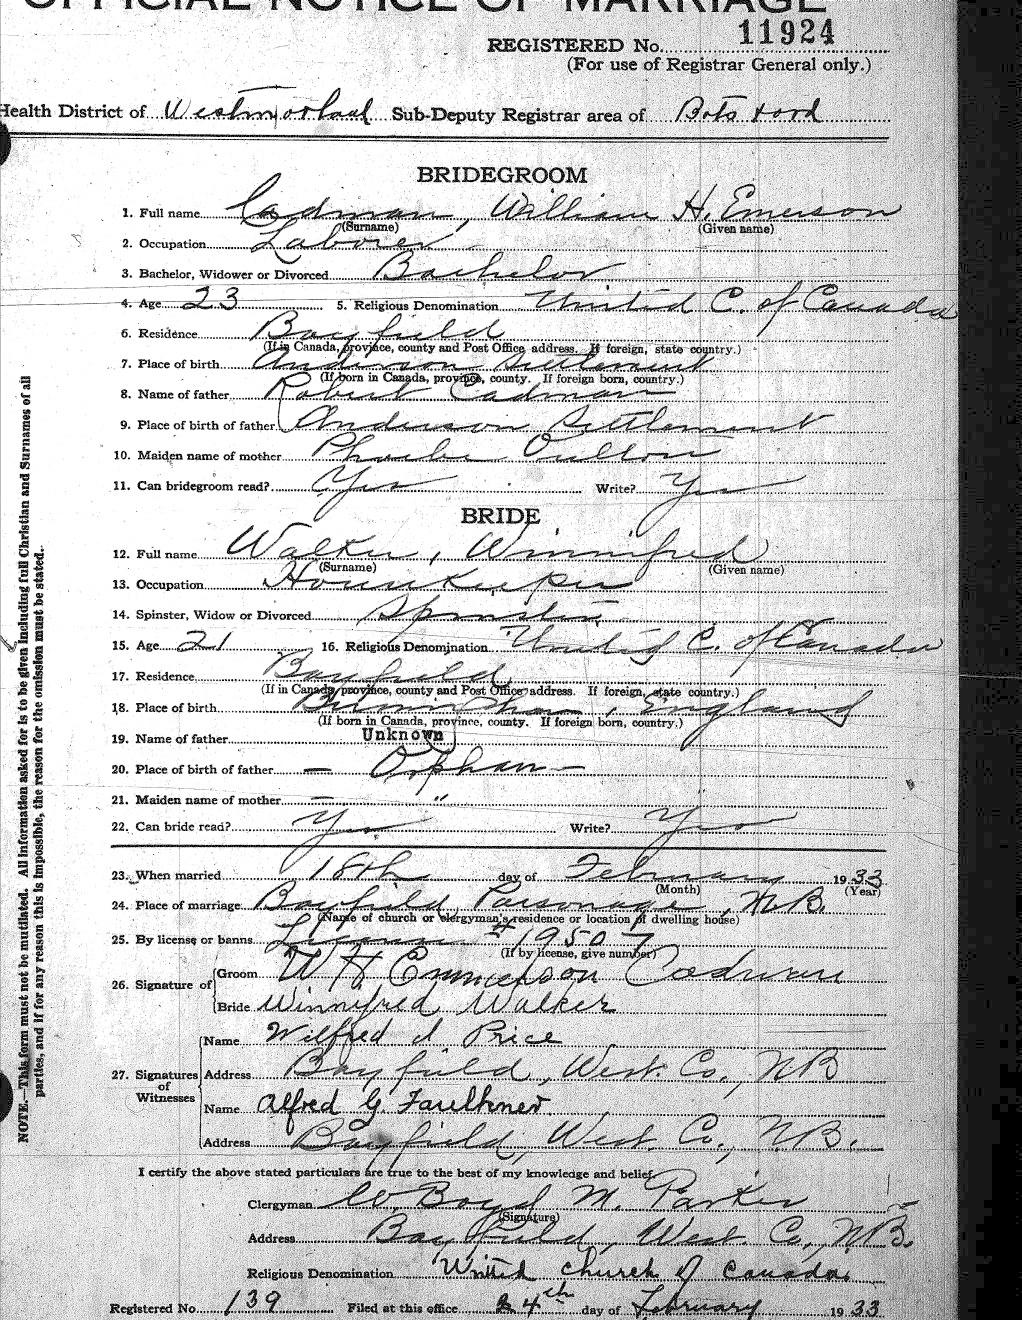 OFFICIAL NOTICE OF MARRIAGE
REGISTERED No. 11924
(For use of Registrar General only.)
Health District of Westmorland Sub-Deputy Registrar area of Botsford
BRIDEGROOM
1. Full name Cadman, William H. Emerson
(Surname) (Given name)
2. Occupation Laborer
3. Bachelor, Widower or Divorced Bachelor
4. Age 23 5. Religious Denomination United C. of Canada
6. Residence Bayfield
(If in Canada, province, county and Post Office address. If foreign, state country.)
7. Place of birth Anderson Settlement
(If born in Canada, province, county. If foreign born, country.)
8. Name of father Robert Cadman
9. Place of birth of father Anderson Settlement
10. Maiden name of mother Phoebe Oulton
11. Can bridegroom read? Yes Write? Yes
BRIDE
12. Full name Walker, Winnifred
(Surname) (Given name)
13. Occupation Housekeeper
14. Spinster, Widow or Divorced Spinster
15. Age 21 16. Religious Denomination United C. of Canada
17. Residence Bayfield
(If in Canada, province, county and Post Office address. If foreign, state country.)
18. Place of birth Birmingham, England
(If born in Canada, province, county. If foreign born, country.)
19. Name of father Unknown
20. Place of birth of father — Orphan —
21. Maiden name of mother — "
22. Can bride read? Yes Write? Yes
23. When married 18th day of February 1933
(Month) (Year)
24. Place of marriage Bayfield Parsonage, N.B.
(Name of church or clergyman's residence or location of dwelling house)
25. By license or banns License # 19507
(If by license, give number)
26. Signature of Groom W H Emmerson Cadman
Bride Winnifred Walker
27. Signatures of Witnesses
Name Wilfred J Price
Address Bayfield, West. Co., NB
Name Alfred G. Faulkner
Address Bayfield, West. Co., N.B.
I certify the above stated particulars are true to the best of my knowledge and belief.
Clergyman W. Boyd M. Parker
(Signature)
Address Bayfield, West. Co., N.B.
Religious Denomination United Church of Canada
Registered No. 139 Filed at this office 24th day of February 1933
NOTE.—This form must not be mutilated. All information asked for is to be given including full Christian and Surnames of all
parties, and if for any reason this is impossible, the reason for the omission must be stated.